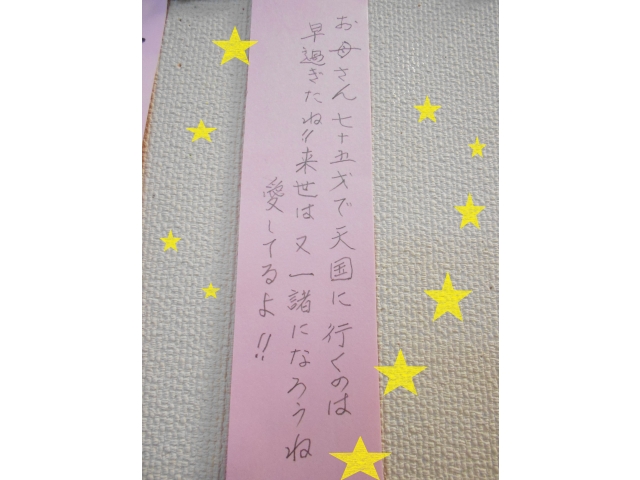 お母さん七十五才で天国に行くのは
早過ぎたね!!来世は又一諸になろうね
愛してるよ!!